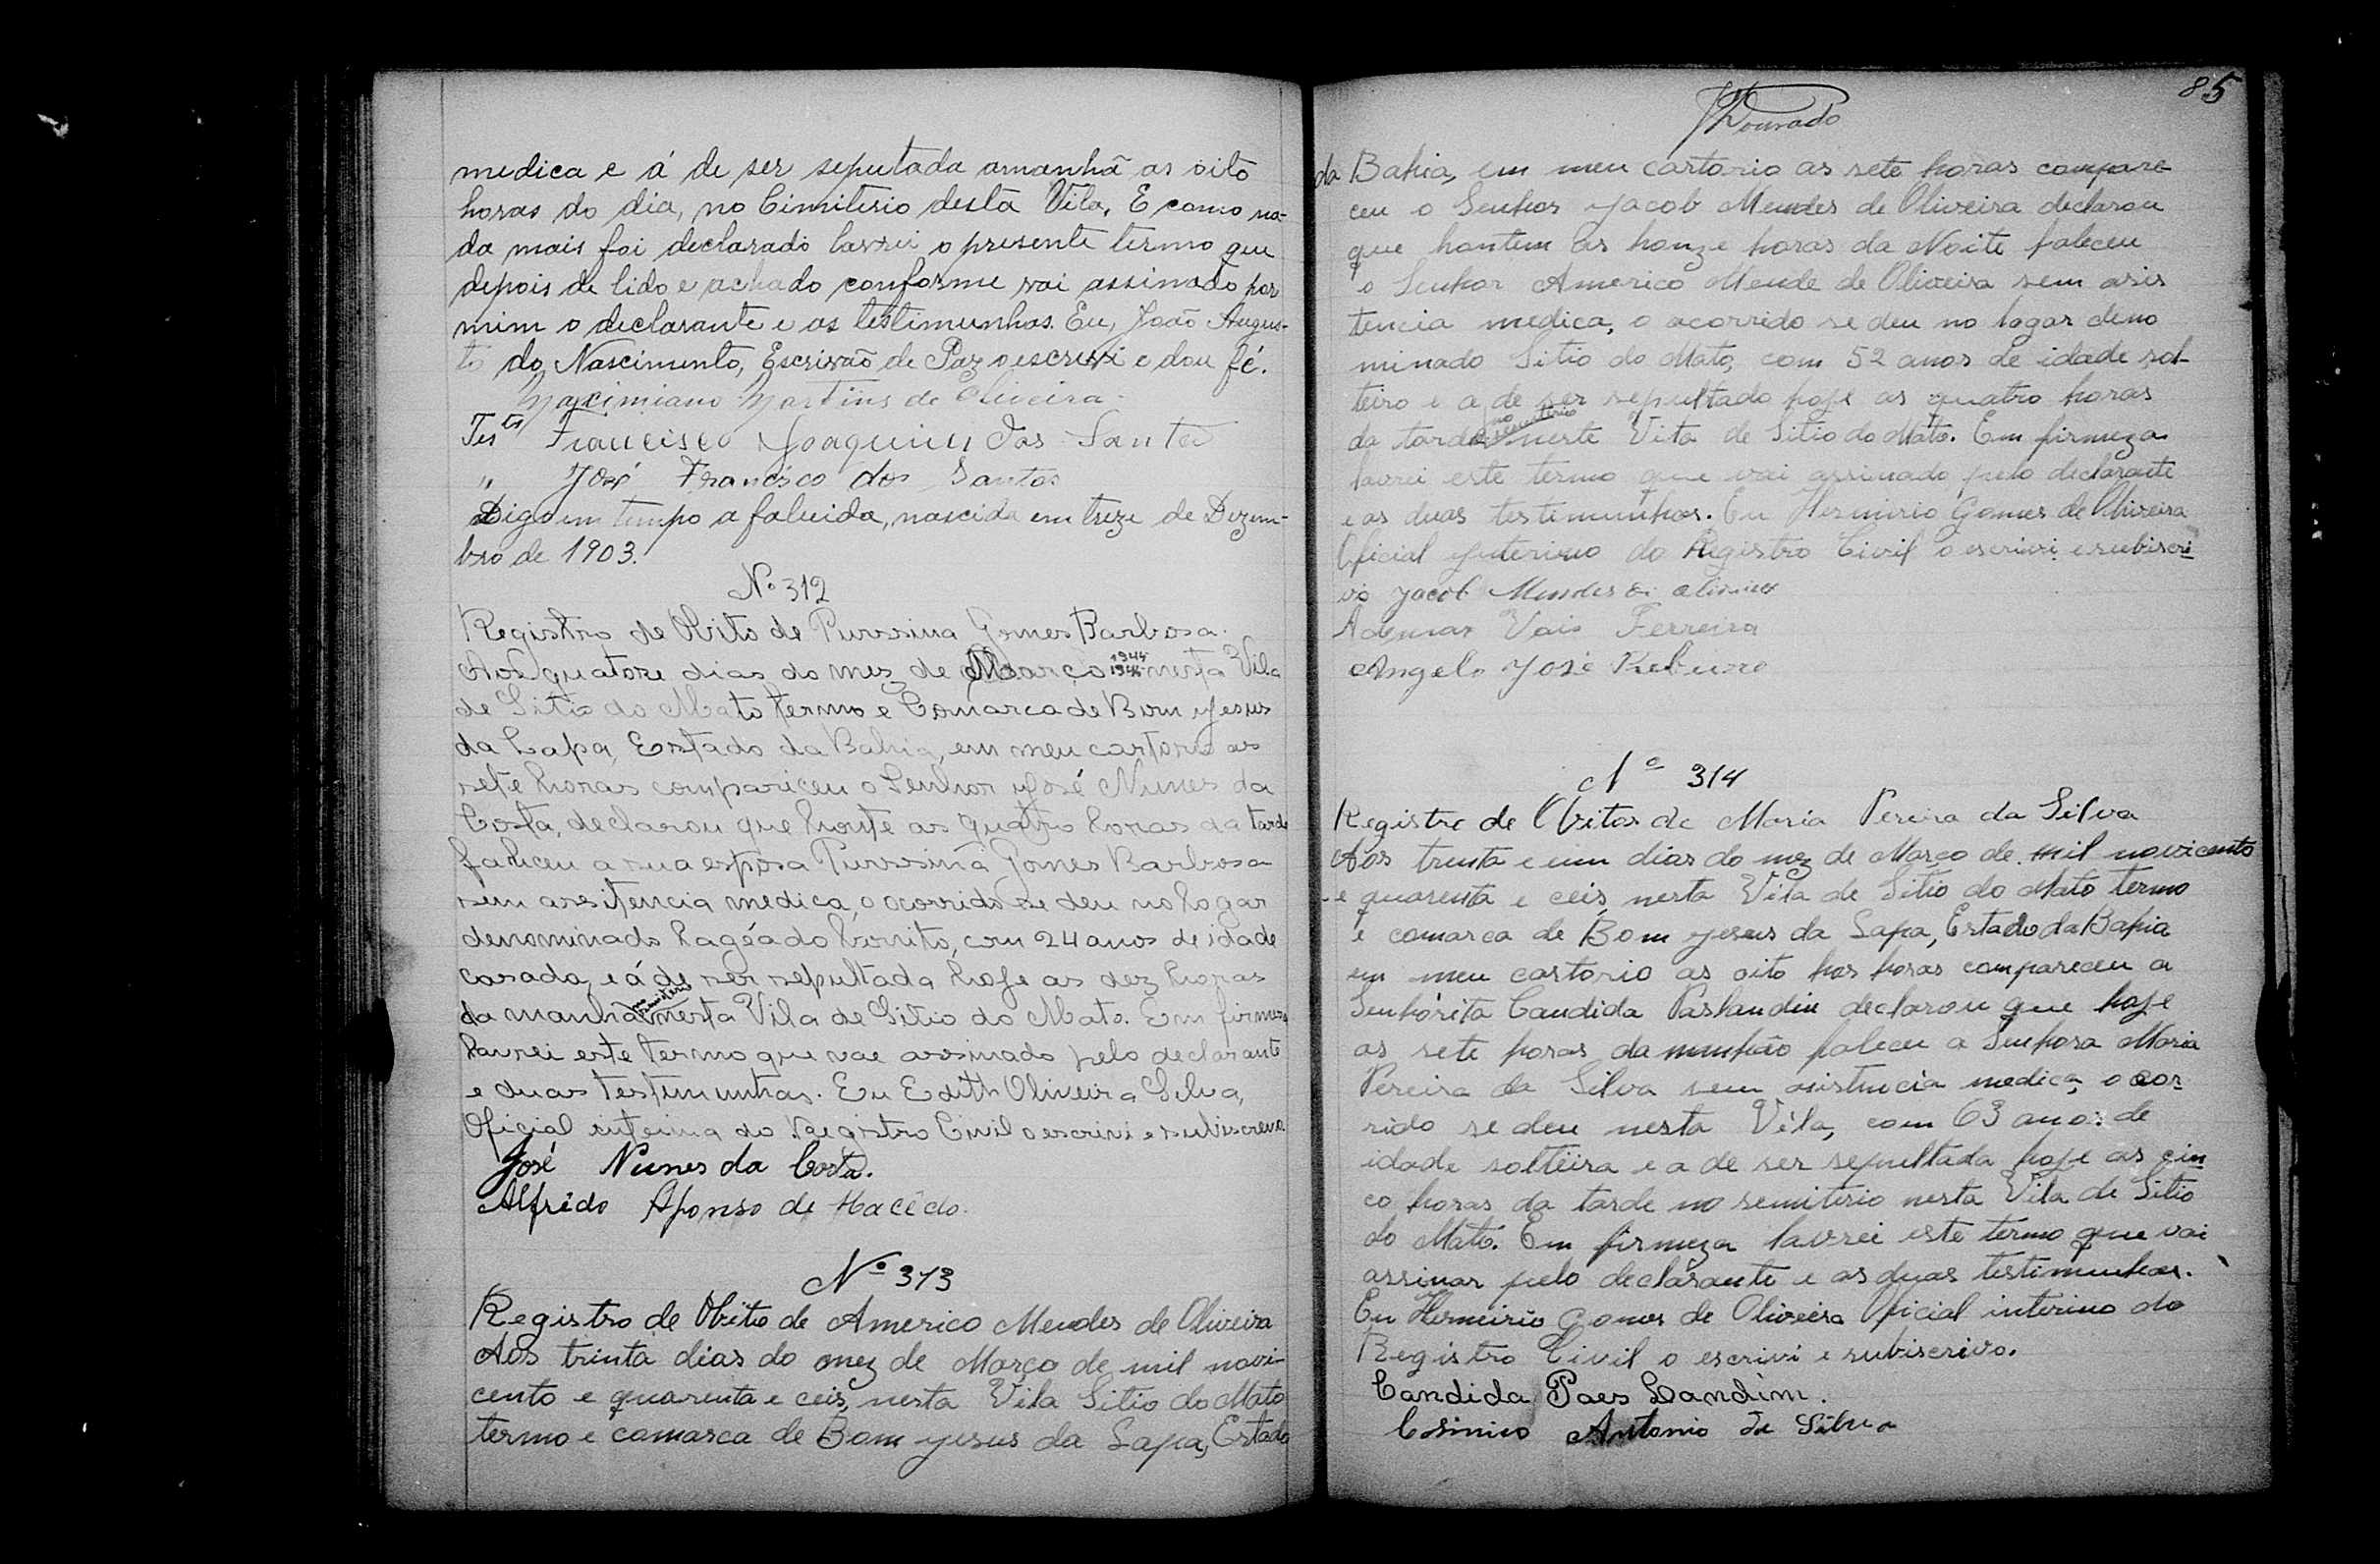 medica e á de ser seputada amanhã as oito
horas do dia, no Cimiterio desta Vila. E como na-
da mais foi declarado lavrei o presente termo que
depois de lido e achado conforme vai assinado por
mim o declarante e as testimunhas. Eu, João Augus-
to do Nascimento, Escrivão de Paz o escrevi e dou fé.
Maximiano Martins de Oliveira
Tes tas Francisco Joaquim dos Santo
" José Francisco dos Santos
Digo em tempo a falicida, nascida em treze de Dezem-
bro de 1903.
Nº 312
Registro de Obito de Gomes Barbosa.
Aos quatorze dias do mez de Março 1944 1946 nesta Vila
de Sitio do Mato termo e Comarca de Bom Jesus
da Lapa, Estado da Bahia, em meu cartorio as
sete horas compariceu o Senhor José Nunes da
Costa, declarou que honte as quatro horas da tarde
faliceu a sua esposa Gomes Barbosa
sem assitencia medica, o ocorrido se deu no logar
denominado Lagéado bonito, com 24 anos de idade
casada, e á de ser sepultada hoje as dez horas
da manhã no nesta Vila de Sitio do Mato. Em firmeza
lavrei este termo que vae assinado pelo declarante
e duas testimunhas. Eu Edith Oliveira Silva,
Oficial interina do Registro Civil o escrivi e subiscrevo.
José Nunes da Costa.
Alfrêdo Afonso de Macêdo.
Nº 313
Registro de Obito de Americo Mendes de Oliveira
Aos trinta dias do mez de Março de mil novi-
cento e quarenta e ceis, nesta Vila Sitio do Mato
termo e comarca de Bom Jesus da Lapa, Estado
85
Dourado
da Bahia, em meu cartorio as sete horas compare-
ceu o Senhor Jacob Mendes de Oliveira declarou
que hontem as honze horas da Noite faleceu
o Senhor Americo Mende de Oliveira sem asis
tencia medica, o ocorrido se deu no logar deno
minado Sitio do Mato, com 52 anos de idade sol-
teiro e a de ser sepultado hoje as quatro horas
da tarde no neste Vila de Sitio do Mato. Em firmeza
lavrei este termo que vai assinado pelo declarante
e as duas testimunhas. Eu Hermirio Gomes de Oliveira
Oficial Interino do Registro Civil o escrivi e subiscri
vo Jacob Mendes de Oliveira
Ademar Vais Ferreira
Angelo José
Nº 314
Registro de Obitos de Maria Pereira da Silva
Aos trinta e um dias do mez de Março de mil novicento
e quarenta e ceis, nesta Vila de Sitio do Mato termo
e comarca de Bom Jesus da Lapa, Estado da Bahia
em meu cartorio as oito hos horas compareceu a
Senhórita Candida Paslandin declarou que hoje
as sete horas da munhão faleceu a Senhora Maria
Pereira da Silva sem asistencia medica, o ocor-
rido se deu nesta Vila, com 63 anos de
idade solteira e a de ser sepultada hoje as cin
co horas da tarde no semiterio nesta Vila de Sitio
do Mato. Em firmeza lavrei este termo que vai
assinar pelo declarante e as duas testimunhas.
Eu Hermirio Gomes de Oliveira Oficial interino do
Registro Civil o escrivi e subiscrivo.
Candida Paes Landim.
Antonio da Silva